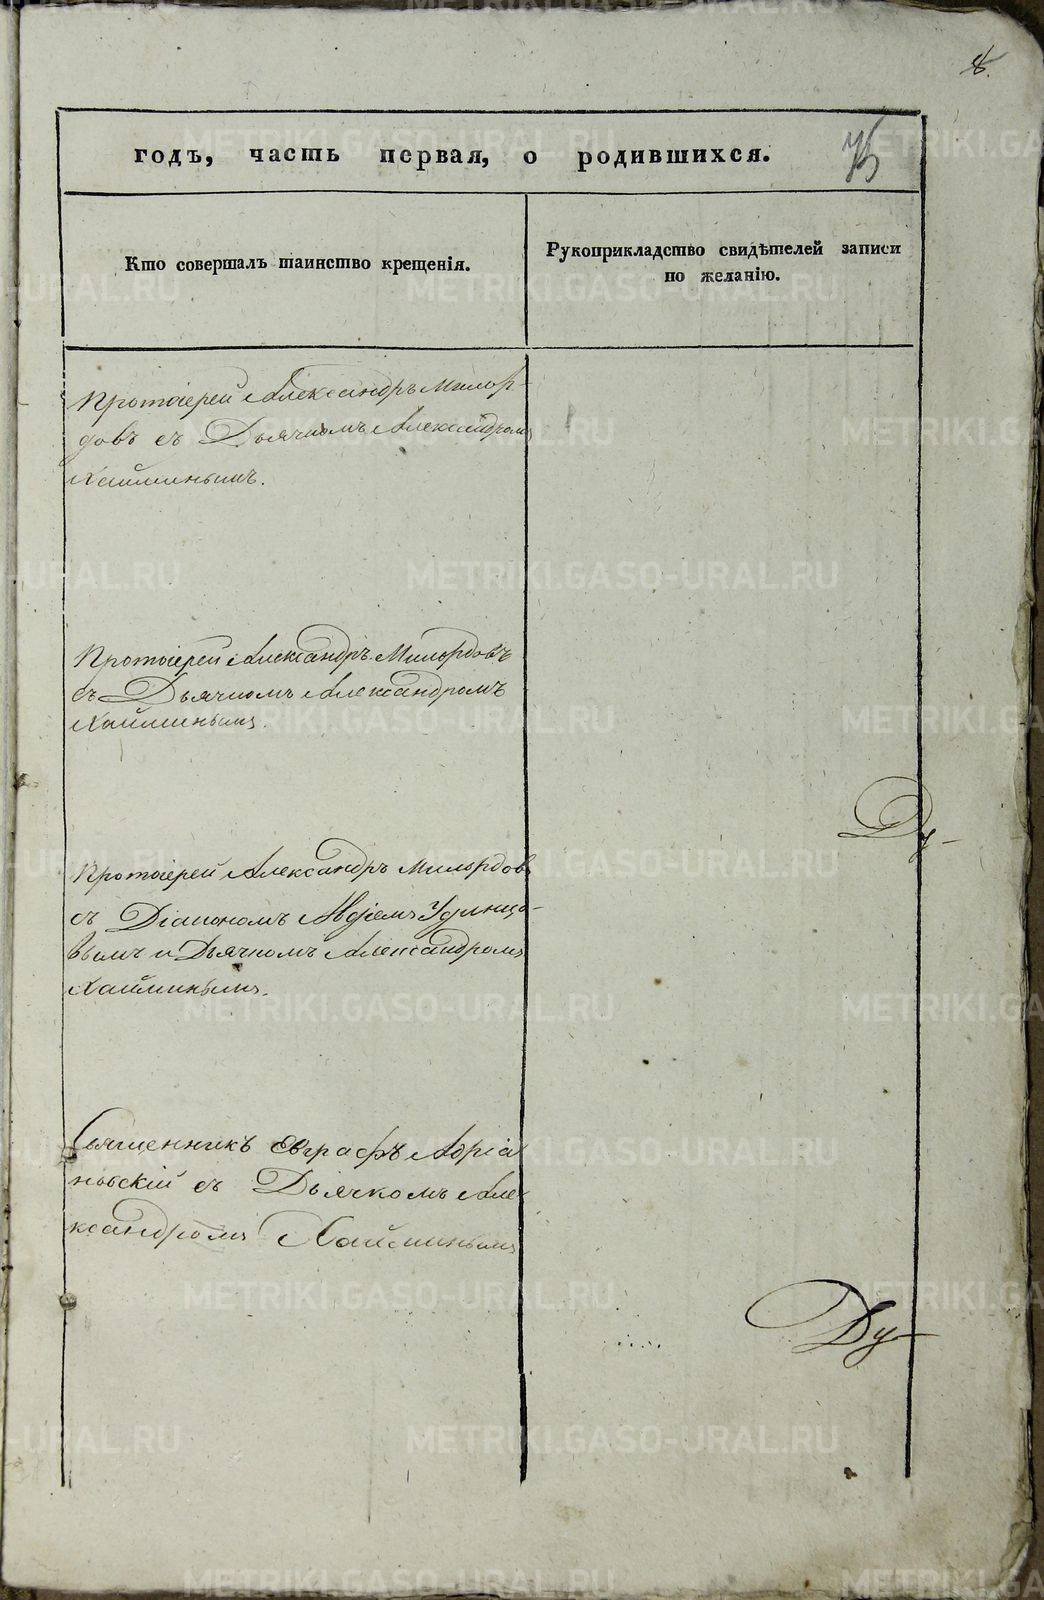 8.
годъ, часть первая, о родившихся.
75
Кто совершалъ таинство крещенія.
Рукоприкладство свидѣтелей записи
по желанію.
Протоіерей Александръ Милор-
довъ съ Дьячкомъ Александромъ
Хайминымъ.
Протоіерей Александръ Милордовъ
съ Дьячкомъ Александромъ
Хайминымъ.
Ду-
Протоіерей Александръ Милордовъ
съ Діакономъ Авдіемъ Удинцо-
вымъ и Дьячкомъ Александромъ
Хайминымъ.
Священникъ Евграфъ Адріа
новскій съ Дьячкомъ Але
ксандромъ Хайминымъ
Ду-
METRIKI.GASO-URAL.RU